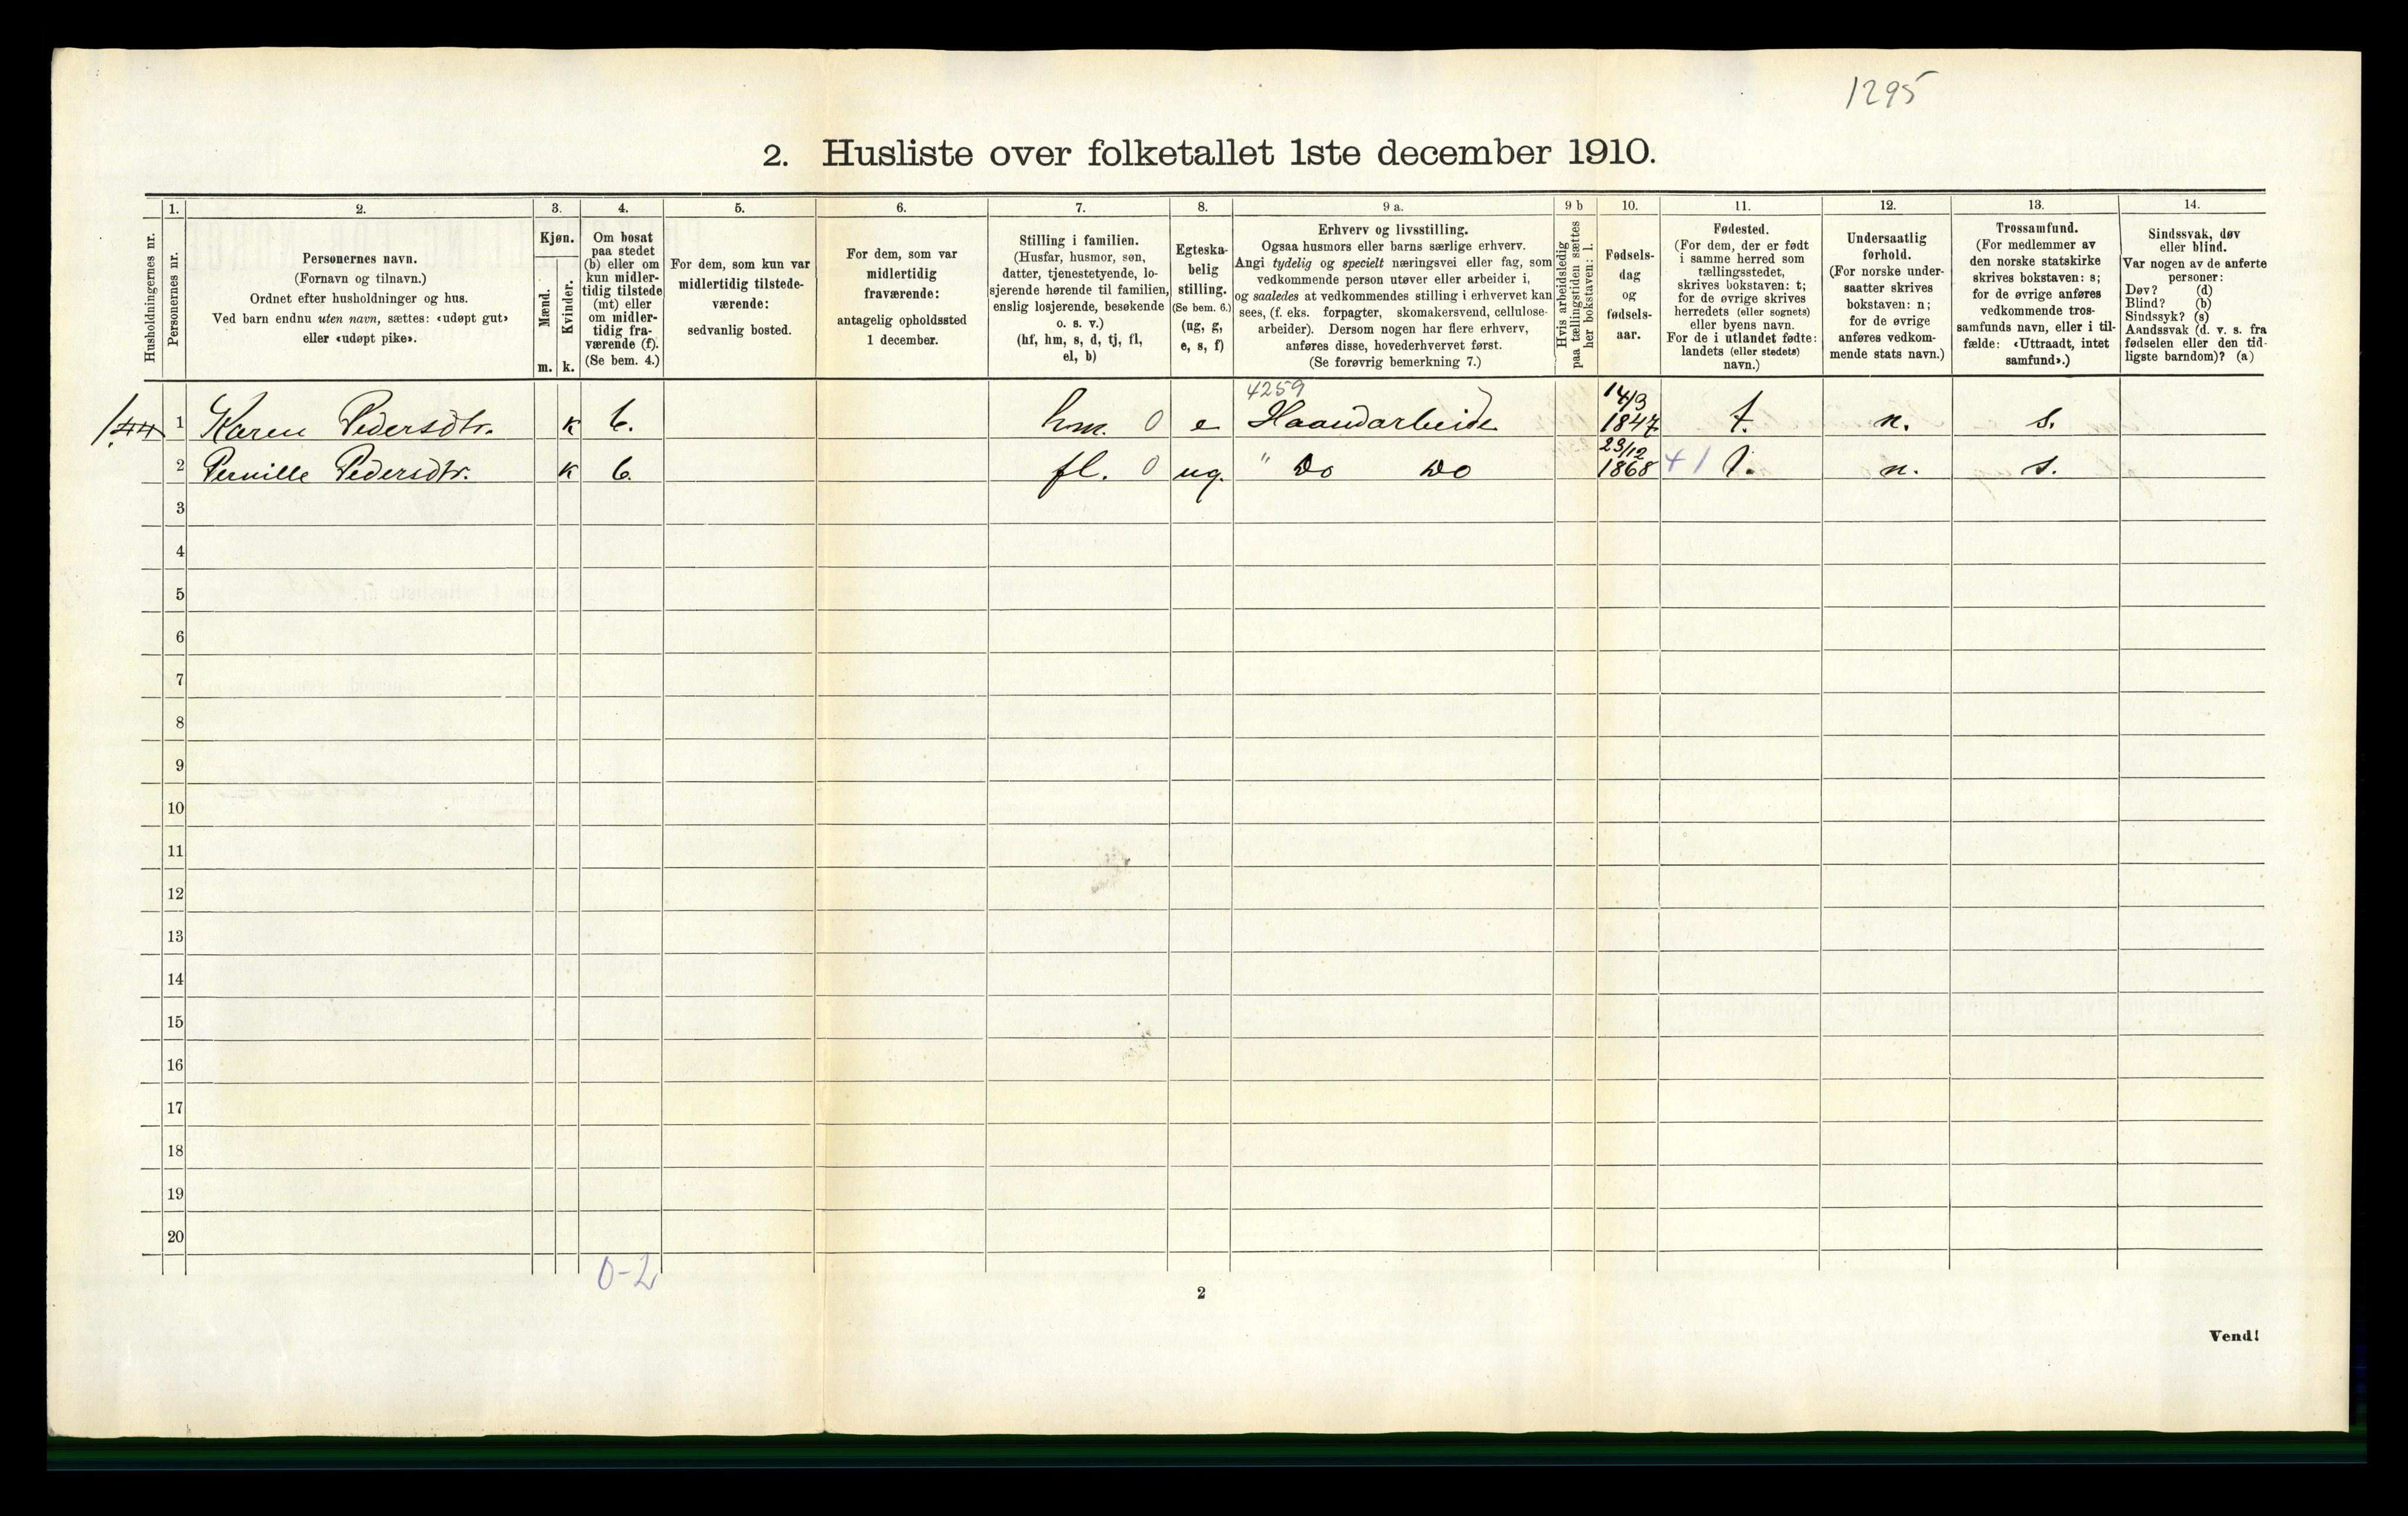 1295
2. Husliste over folketallet 1ste december 1910.
Husholdningernes nr.
1.
Personernes nr.
2.
Personernes navn.
(Fornavn og tilnavn.)
Ordnet efter husholdninger og hus.
Ved barn endnu uten navn, sættes: «udøpt gut»
eller «udøpt pike».
3.
Kjøn.
Mænd.
Kvinder.
m. k.
4.
Om bosat
paa stedet
(b) eller om
kun midler-
tidig tilstede
(mt) eller
om midler-
tidig fra-
værende (f).
(Se bem. 4.)
5.
For dem, som kun var
midlertidig tilstede-
værende:
sedvanlig bosted.
6.
For dem, som var
midlertidig
fraværende:
antagelig opholdssted
1 december.
7.
Stilling i familien.
(Husfar, husmor, søn,
datter, tjenestetyende, lo-
sjerende hørende til familien,
enslig losjerende, besøkende
o. s. v.)
(hf, hm, s, d, tj, fl,
el, b)
8.
Egteska-
belig
stilling.
(Se bem. 6.)
(ug, g,
e, s, f)
9 a.
Erhverv og livsstilling.
Ogsaa husmors eller barns særlige erhverv.
Angi tydelig og specielt næringsvei eller fag, som
vedkommende person utøver eller arbeider i,
og saaledes at vedkommendes stilling i erhvervet kan
sees, (f. eks. forpagter, skomakersvend, cellulose-
arbeider). Dersom nogen har flere erhverv,
anføres disse, hovederhvervet først.
(Se forøvrig bemerkning 7.)
9 b
Hvis arbeidsledig
paa tællingstiden sættes
her bokstaven: l.
10.
Fødsels-
dag
og
fødsels-
aar.
11.
Fødested.
(For dem, der er født
i samme herred som
tællingsstedet,
skrives bokstaven: t;
for de øvrige skrives
herredets (eller sognets)
eller byens navn.
For de i utlandet fødte:
landets (eller stedets)
navn.)
12.
Undersaatlig
forhold.
(For norske under-
saatter skrives
bokstaven: n;
for de øvrige
anføres vedkom-
mende stats navn.)
13.
Trossamfund.
(For medlemmer av
den norske statskirke
skrives bokstaven: s;
for de øvrige anføres
vedkommende tros-
samfunds navn, eller i til-
fælde: «Uttraadt, intet
samfund».)
14.
Sindssvak, døv
eller blind.
Var nogen av de anførte
personer:
Døv? (d)
Blind? (b)
Sindssyk? (s)
Aandssvak (d. v. s. fra
fødselen eller den tid-
ligste barndom)? (a)
4259 14/3
1 Karen Pedersdtr. k b. hm. 0 e Haandarbeide 1847 t. n. s.
23/12
2 Pernille Pedersdtr. k b. fl. 0 ug. " Do Do 1868 41 t. n. s.
3
4
5
6
7
8
9
10
11
12
13
14
15
16
17
18
19
20
0-2
2
Vend!